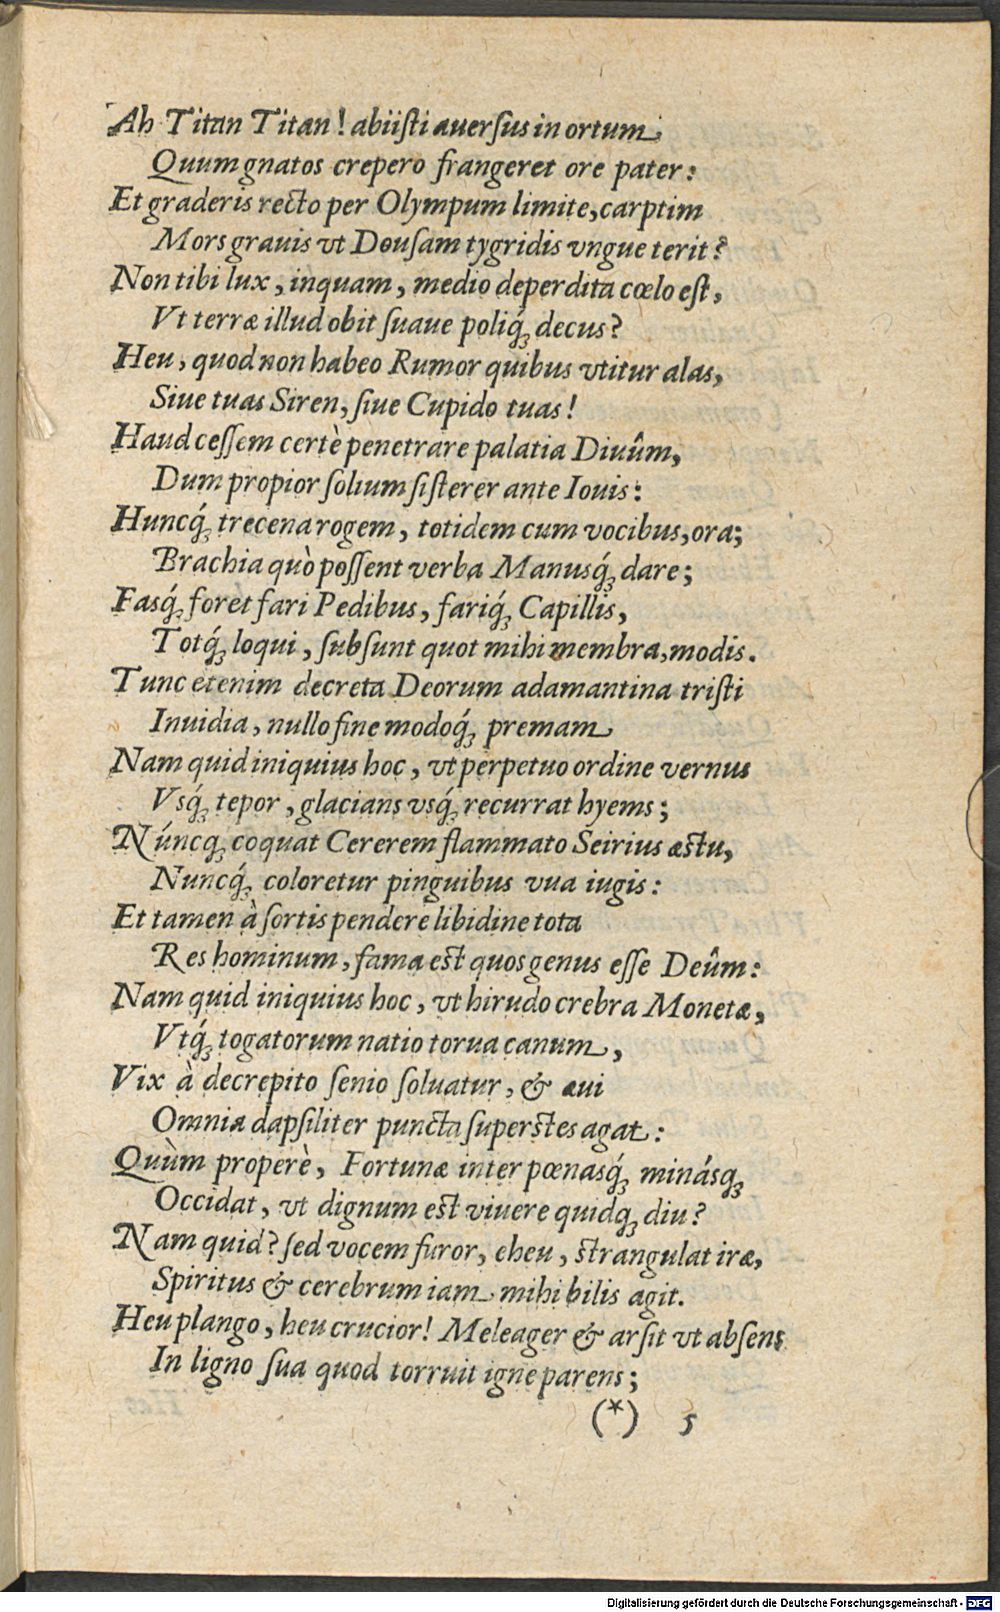 Ah Titan Titan! abiiſti auerſus in ortum,
Quum gnatos crepero frangeret ore pater:
Et graderis recto per Olympum limite, carptim
Mors grauis vt Douſam tygridis vngue terit?
Non tibi lux, inquam, medio deperdita cœlo eſt,
Vt terræ illud obit ſuaue poliq́ꝫ decus?
Heu, quod non habeo Rumor quibus vtitur alas,
Siue tuas Siren, ſiue Cupido tuas!
Haud ceſſem certè penetrare palatia Diuûm,
Dum propior ſolium ſiſterer ante Iouis:
Huncq́ꝫ trecena rogem, totidem cum vocibus, ora;
Brachia quò poſſent verba Manusq́ꝫ dare;
Fasq́ꝫ foret fari Pedibus, fariq́ꝫ Capillis,
Totq́ꝫ loqui, ſubſunt quot mihi membra, modis.
Tunc etenim decreta Deorum adamantina triſti
Inuidia, nullo fine modoq́ꝫ premam
Nam quid iniquius hoc, vt perpetuo ordine vernus
Vsq́ꝫ tepor, glacians vsq́ꝫ recurrat hyems;
Núncqꝫ coquat Cererem flammato Seirius æstu,
Nuncq́ꝫ coloretur pinguibus vua iugis:
Et tamen à ſortis pendere libidine tota
Res hominum, fama est quos genus eſſe Deûm:
Nam quid iniquius hoc, vt hirudo crebra Monetæ,
Vtq́ꝫ togatorum natio torua canum,
Vix à decrepito ſenio ſoluatur, & æui
Omnia dapſiliter puncta ſuperstes agat:
Quùm properè, Fortunæ inter pœnasq́ꝫ minásqꝫ
Occidat, vt dignum est viuere quidqꝫ diu?
Nam quid? ſed vocem furor, eheu, strangulat iræ,
Spiritus & cerebrum iam mihi bilis agit.
Heu plango, heu crucior! Meleager & arſit vt abſens
In ligno ſua quod torruit igne parens;
(*) 5
Digitalisierung gefördert durch die Deutsche Forschungsgemeinschaft - DFG